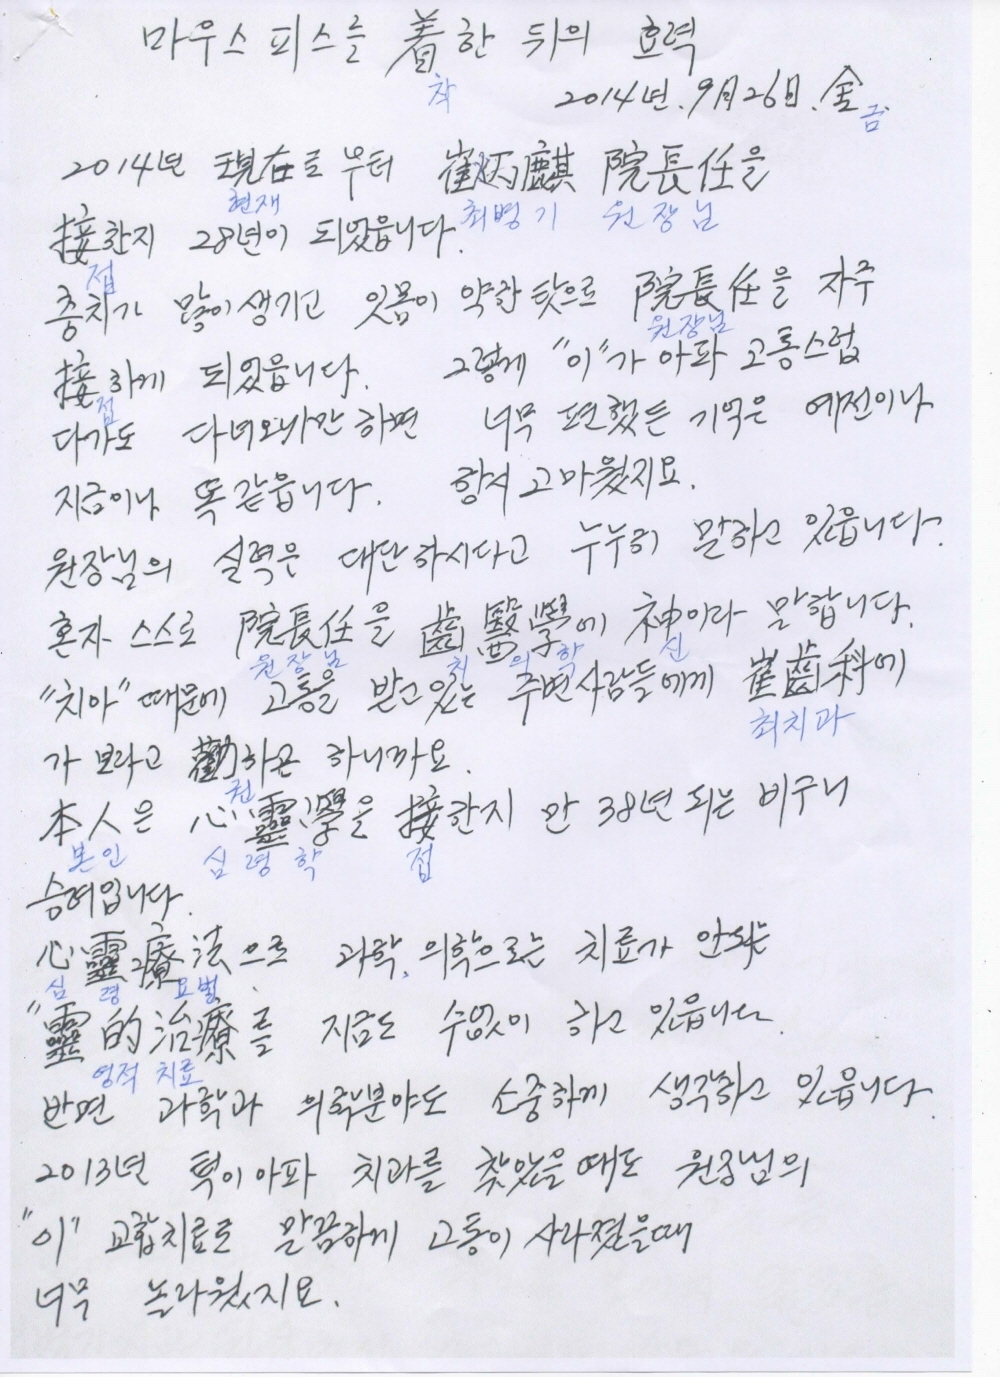 마우스피스를 着한 뒤의 효력
착
2014년. 9月 26日. 金
금
2014년 現在로 부터 崔炳麒 院長任을
현재 최병기 원장님
接한지 28년이 되었읍니다.
접
충치가 많이생기고 잇몸이 약한탓으로 院長任을 자주
원장님
接하게 되었읍니다. 그렇게 "이"가 아파 고통스럽
접
다가도 다녀오기만하면 너무 편했든 기억은 예전이나
지금이나 똑같읍니다. 항시 고마웠지요.
원장님의 실력은 대단하시다고 누누히 말하고 있읍니다.
혼자 스스로 院長任을 齒醫學에 神이라 말합니다.
원장님 치 의 학 신
"치아" 때문에 고통을 받고있는 주변사람들에게 崔齒科에
최치과
가 보라고 勸하곤 하니까요.
권
本人은 心靈學을 接한지 만 38년 되는 비구니
본인 심령학 접
승려입니다.
心靈療法으로 과학, 의학으로는 치료가 안돼는
심 령 요법
"靈的治療를 지금도 수없이 하고 있읍니다.
영적 치료
반면 과학과 의학분야도 소중하게 생각하고 있읍니다
2013년 턱이아파 치과를 찾았을때도 원장님의
"이" 교합치료로 말끔하게 고통이 사라졌을때
너무 놀라웠지요.